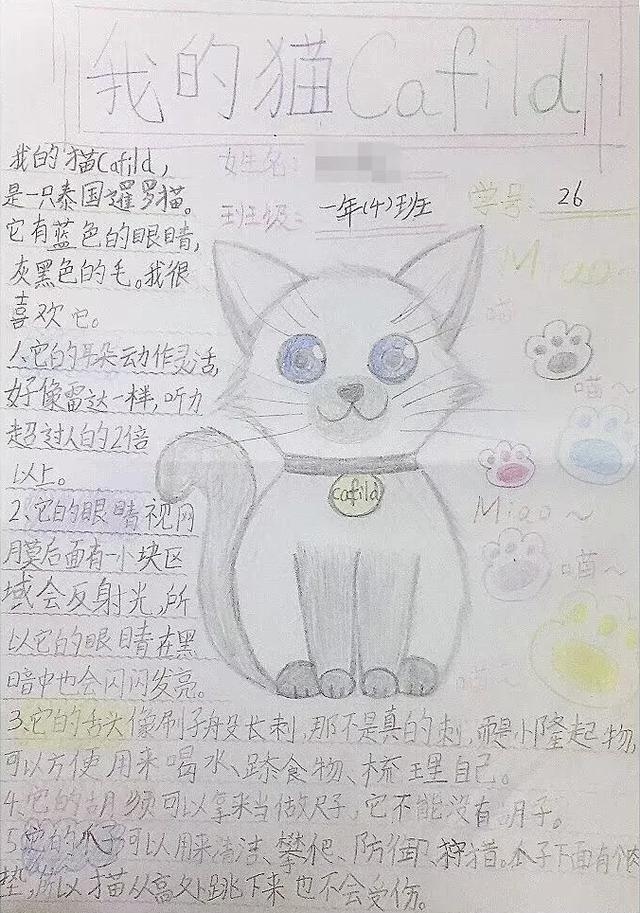 我的猫Cafild
姓名:
班级: 一年(4)班
学号: 26
我的猫Cafild,
是一只泰国暹罗猫。
它有蓝色的眼睛,
灰黑色的毛。我很
喜欢它。
1、它的耳朵动作灵活,
好像雷达一样,听力
超过人的2倍
以上。
2、它的眼睛视网
膜后面有一小块区
域会反射光,所
以它的眼睛在黑
暗中也会闪闪发亮。
3、它的舌头像刷子般长刺,那不是真的刺,而是小隆起物,
可以方便用来喝水、舔食物、梳理自己。
4、它的胡须可以拿来当做尺子,它不能没有胡子。
5、它的爪子可以用来清洁、攀爬、防御、狩猎。爪子下面有个肉
垫,所以猫从高处跳下来也不会受伤。
Cafild
Miao~
喵
喵~
Miao~
喵~
喵~